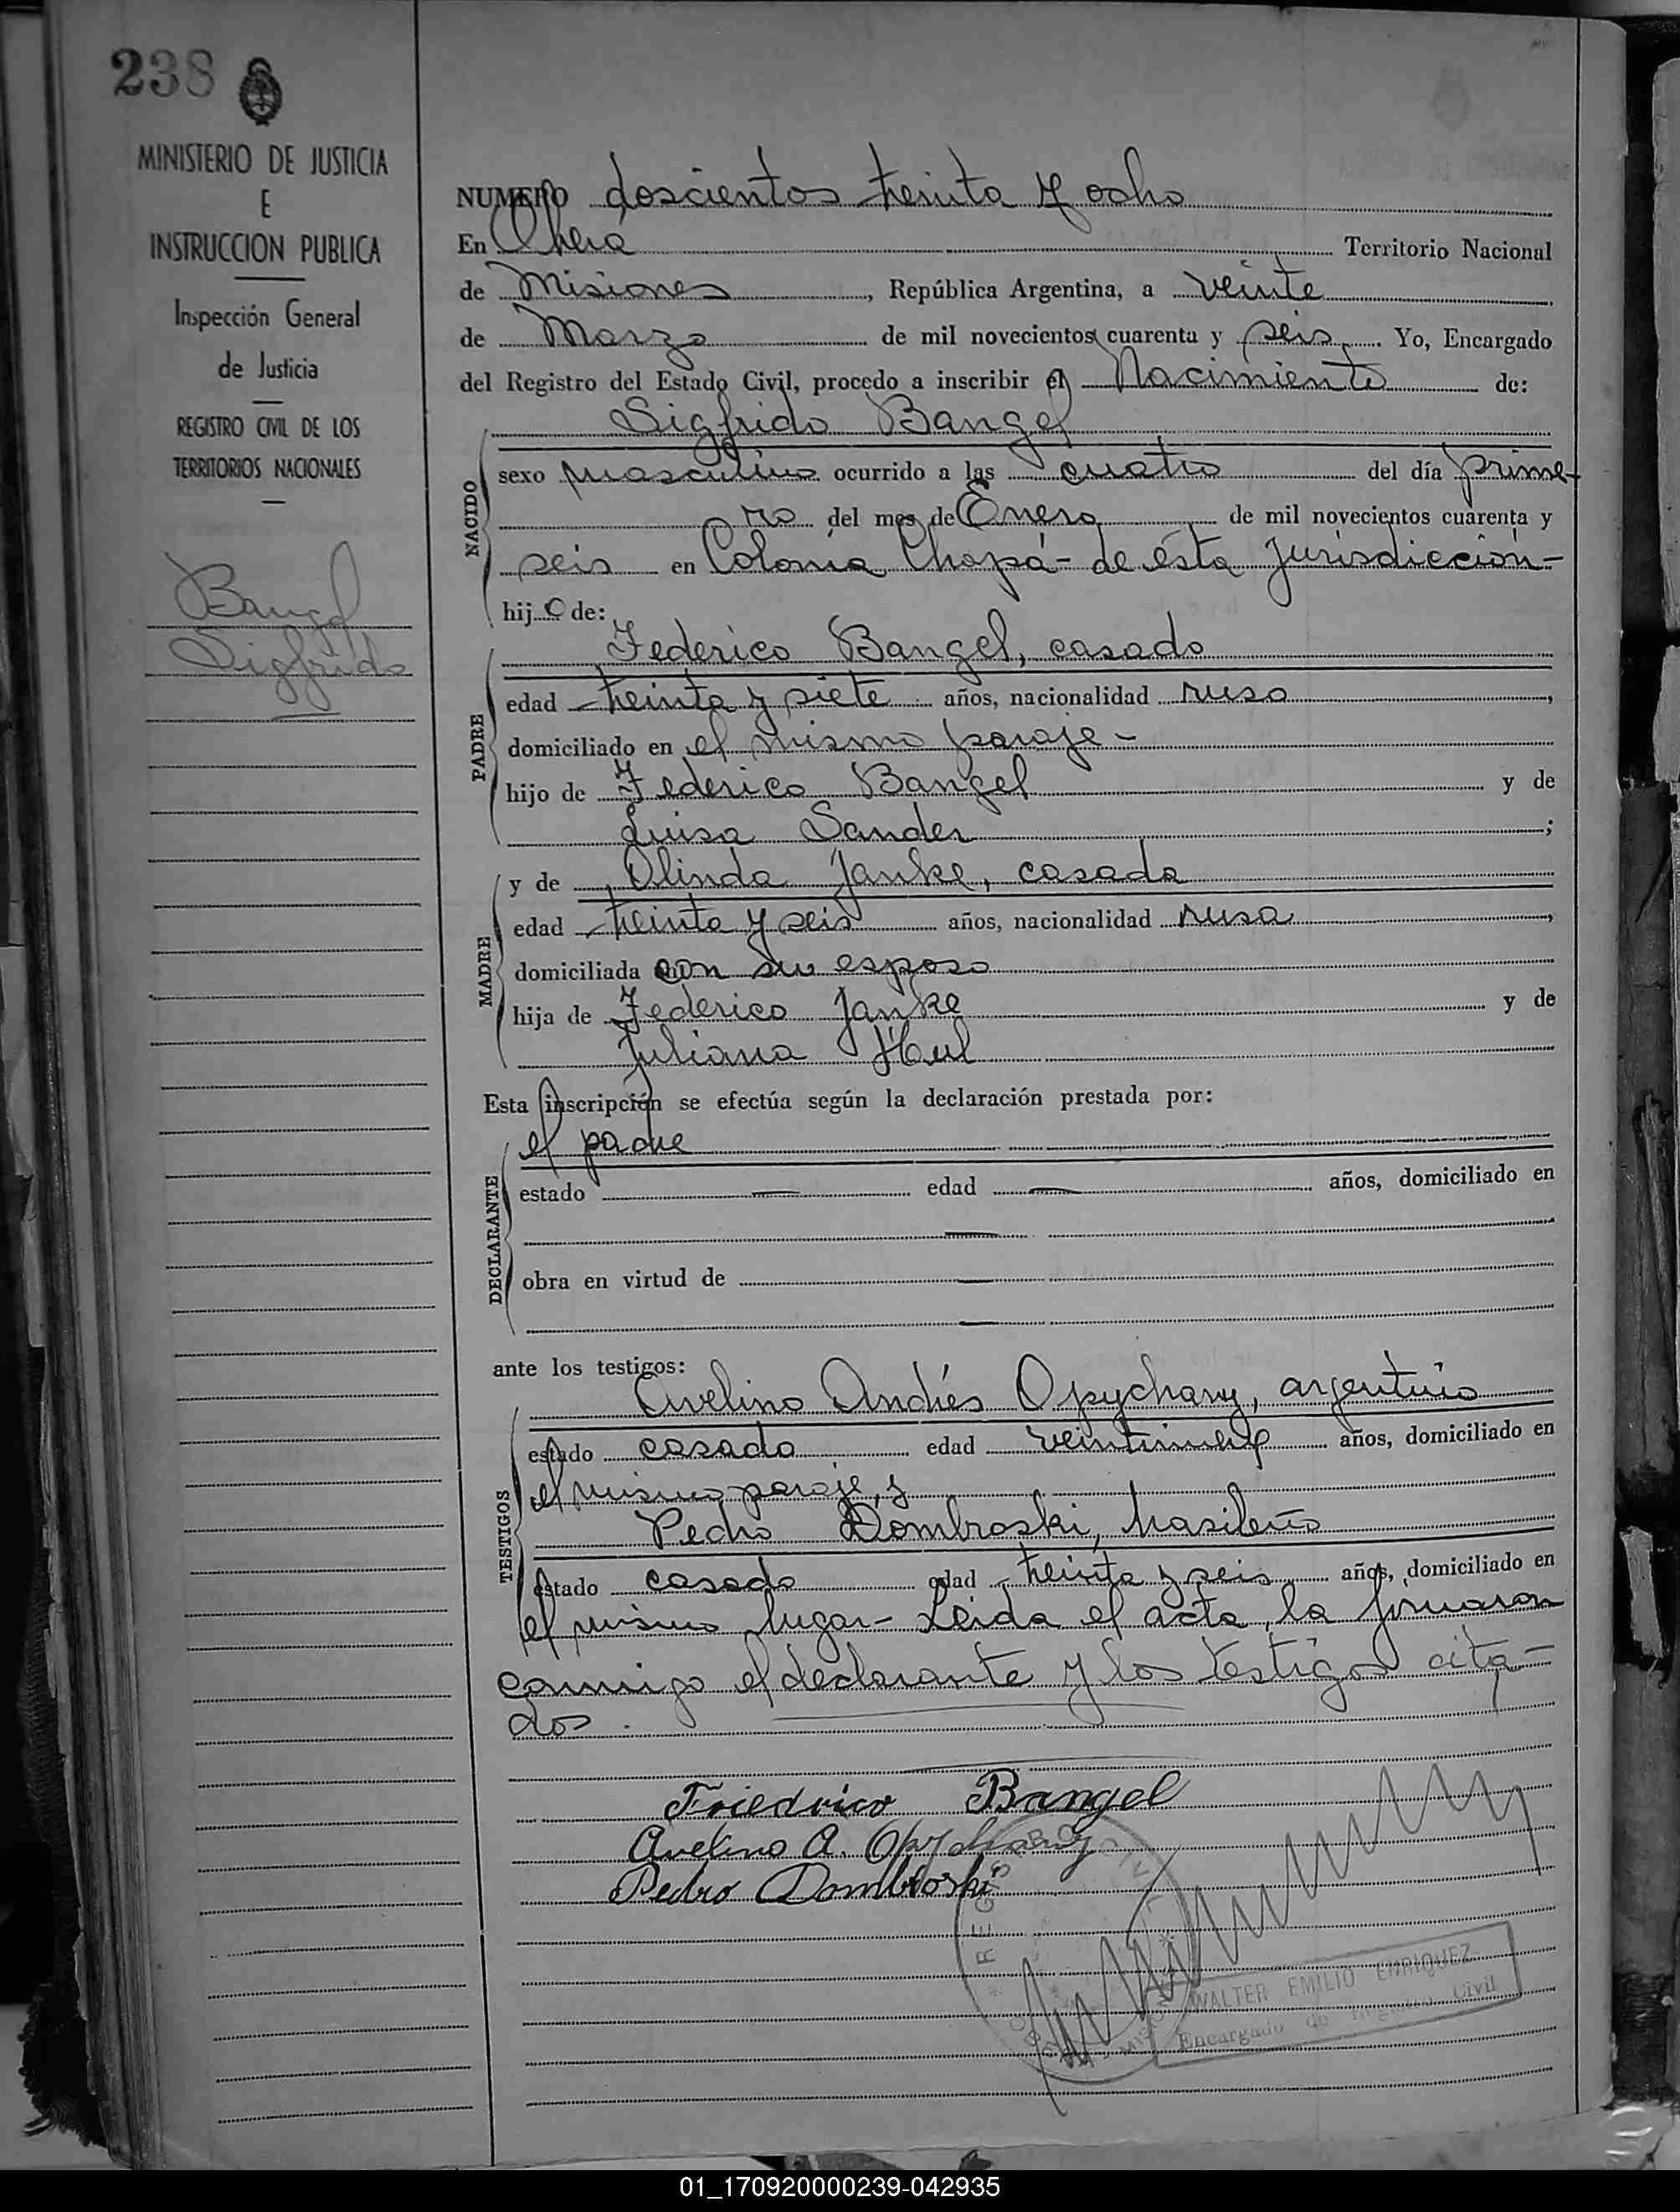 238
MINISTERIO DE JUSTICIA
E
INSTRUCCION PUBLICA
Inspección General
de Justicia
REGISTRO CIVIL DE LOS
TERRITORIOS NACIONALES
Bangel
Sigfrido
NUMERO doscientos treinta y ocho
En Oberá Territorio Nacional
de Misiones, República Argentina, a veinte
de Marzo de mil novecientos cuarenta y seis. Yo, Encargado
del Registro del Estado Civil, procedo a inscribir el Nacimiento de:
Sigfrido Bangel
NACIDO
sexo masculino ocurrido a las cuatro del día prime-
ro del mes de Enero de mil novecientos cuarenta y
seis en Colonia Chapá - de ésta Jurisdicción.-
hijo de:
PADRE
Federico Bangel, casado
edad treinta y siete años, nacionalidad ruso,
domiciliado en el mismo paraje -
hijo de Federico Bangel y de
Luisa Sander;
MADRE
y de Olinda Janke, casada
edad treinta y seis años, nacionalidad rusa,
domiciliada con su esposo
hija de Federico Janke y de
Juliana
Esta inscripción se efectúa según la declaración prestada por:
DECLARANTE
el padre
estado — edad — años, domiciliado en
—
obra en virtud de —
—
ante los testigos:
TESTIGOS
Avelino Andrés Opychany, argentino
estado casado edad veintinueve años, domiciliado en
el mismo paraje, y
Pedro Dombroski, brasileño
estado casado edad treinta y seis años, domiciliado en
el mismo lugar - Leida el acta, la firmaron
conmigo el declarante y los testigos cita-
dos.
Friedrico Bangel
Avelino A. Opychany
Pedro Dombroski
WALTER EMILIO ENRIQUEZ
Encargado de Registro Civil
01_170920000239-042935